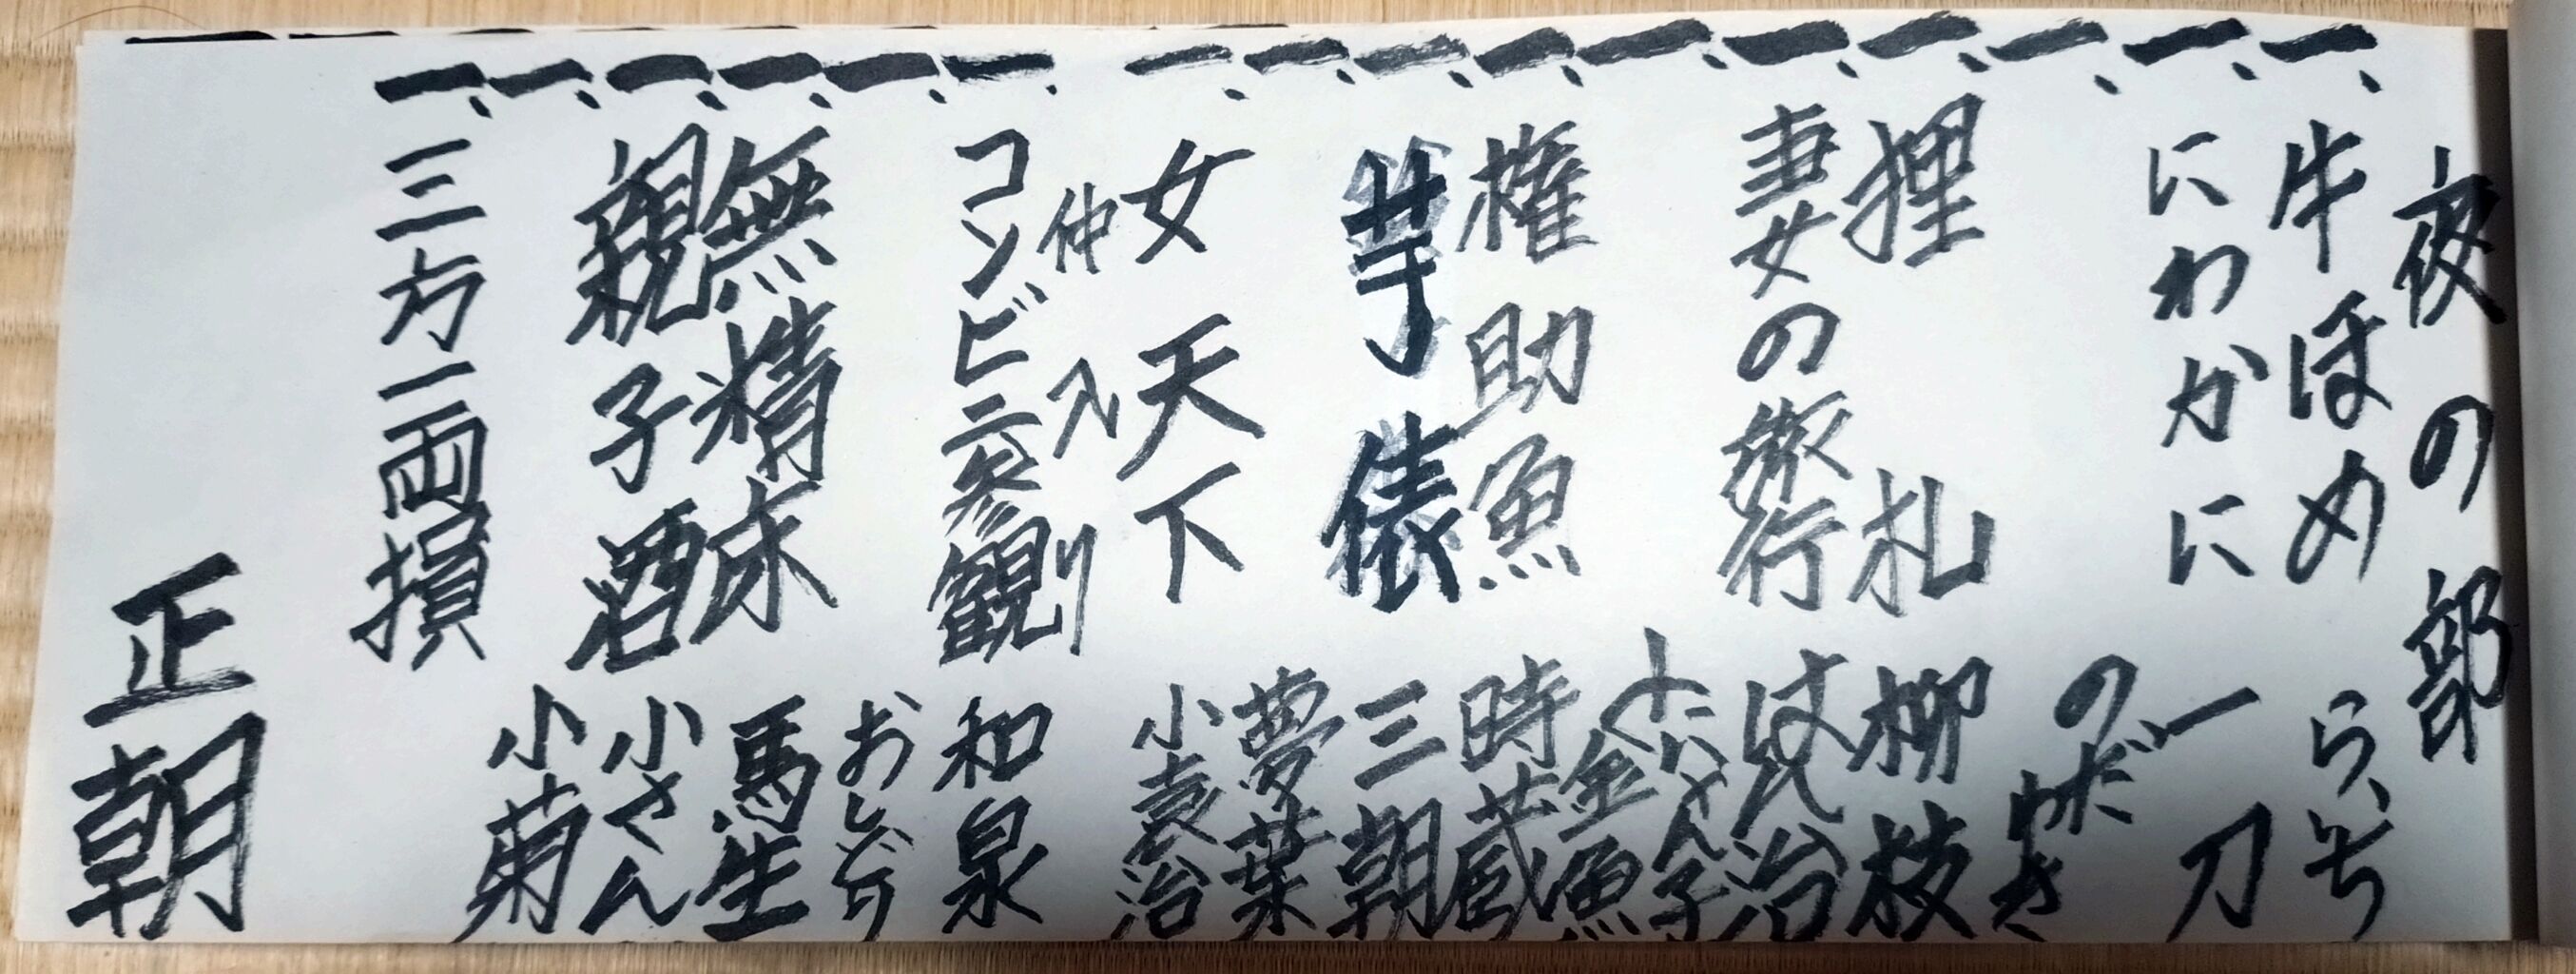 夜の部
一、牛ほめ らっ好
一、にわかに 一刀
一、のだゆき
一、狸札 柳枝
一、妻女の旅行 はん治
一、小んぶ 金魚
一、権助魚 時蔵
一、芋俵 三朝
一、夢葉
一、女天下 小袁治
仲入り
一、コンビニ参観 和泉
一、おしどり
一、無精床 馬生
一、親子酒 小さん
一、小菊
一、三方一両損
正朝